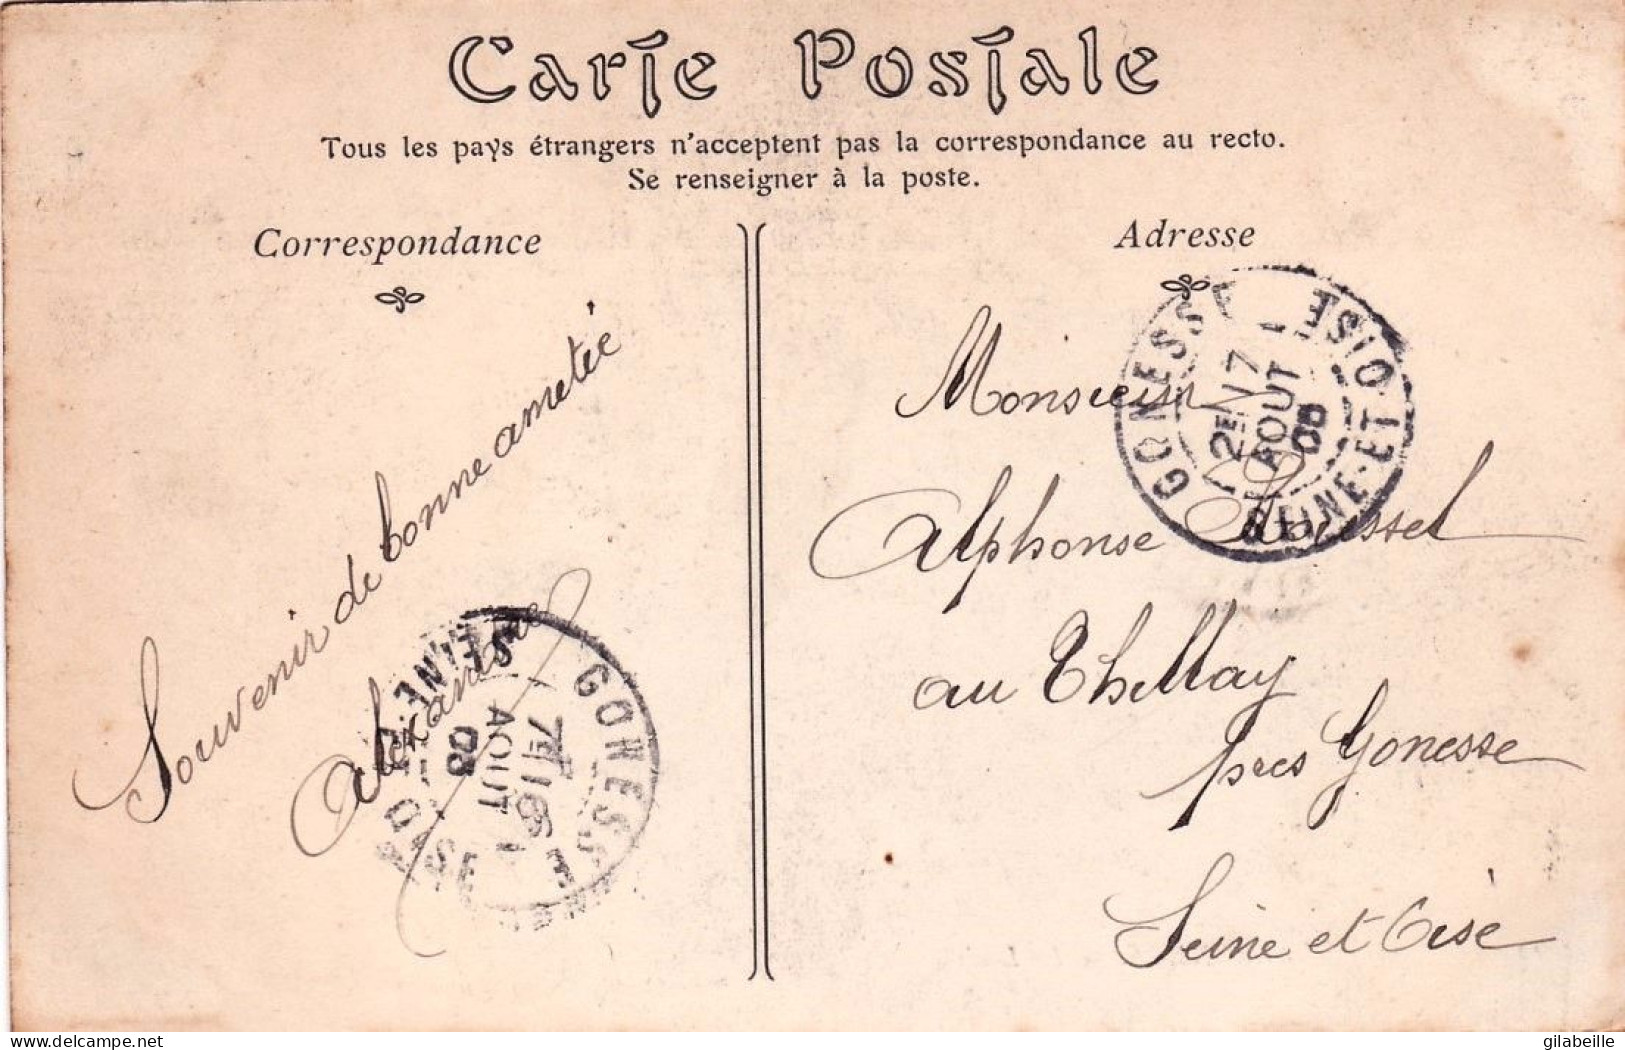 Carte Postale
Tous les pays étrangers n'acceptent pas la correspondance au recto.
Se renseigner à la poste.
Correspondance
Adresse
Souvenir de bonne ametié
Alexandre
Monsieur
Alphonse Roussel
au Thillay
près Gonesse
Seine et Oise
GONESSE
SEINE-ET-OISE
2E 17
AOUT
GONESSE
SEINE ET OISE
7E 16
AOUT
08
delcampe.net
gilabeille